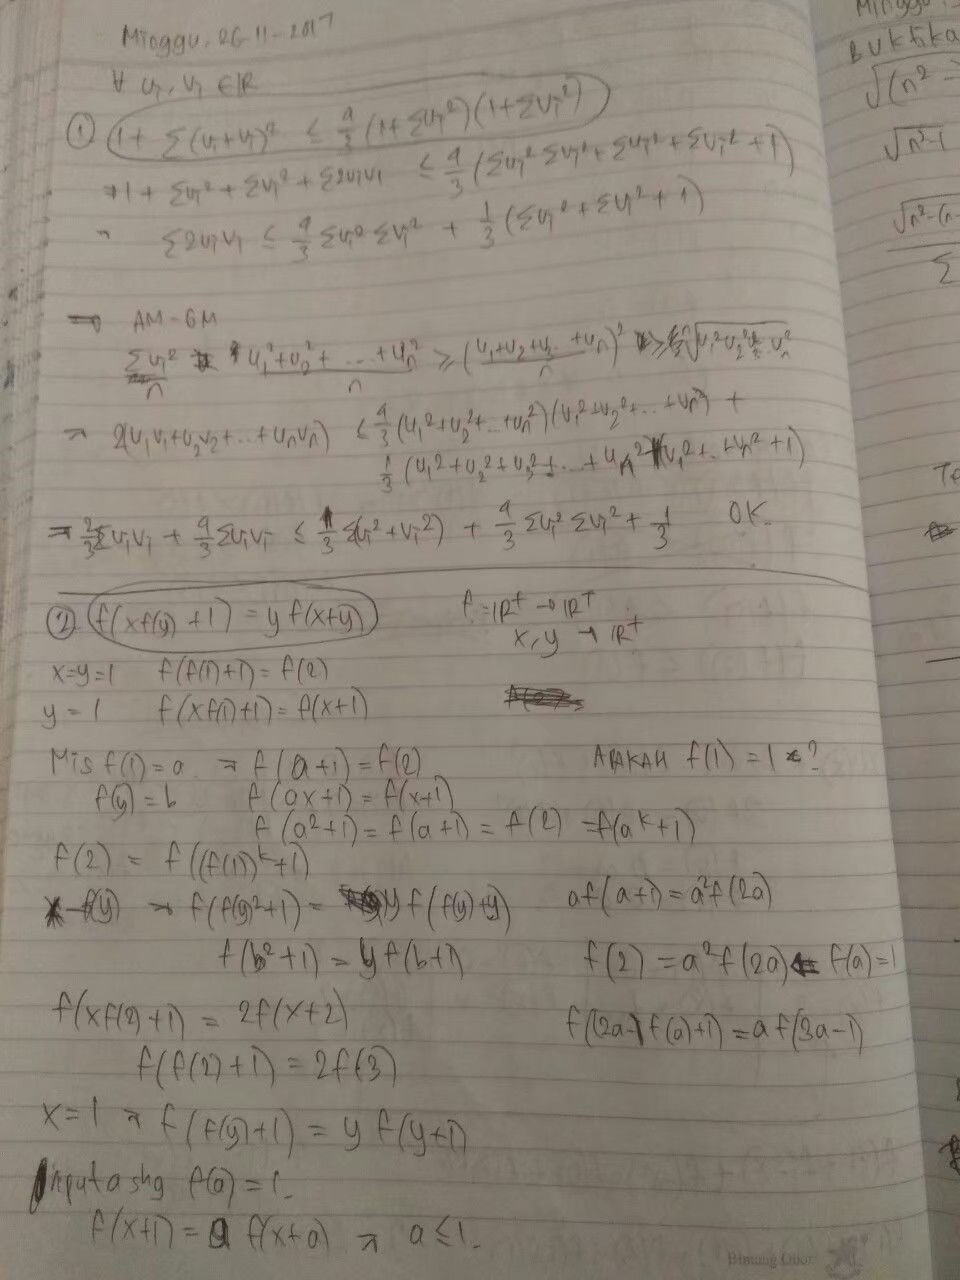 Minggu, 26-11-2017
∀ u₁, v₁ ∈ ℝ
① 1 + Σ(u₁+v₁)² ≤ 4/3 (1+Σu₁²)(1+Σv₁²)
→ 1 + Σu₁² + Σv₁² + Σ2u₁v₁ ≤ 4/3 (Σu₁² Σv₁² + Σu₁² + Σv₁² + 1)
→ Σ2u₁v₁ ≤ 4/3 Σu₁² Σv₁² + 1/3 (Σu₁² + Σv₁² + 1)
⇒ AM-GM
Σu₁²/n u₁²+u₂²+...+un²/n ≥ (u₁+u₂+u₃...+un/n)²
→ 2(u₁v₁+u₂v₂+...+unvn) ≤ 4/3 (u₁²+u₂²+...+un²)(v₁²+v₂²+...+vn²) +
1/3 (u₁²+u₂²+u₃²+...+un²+v₁²+...+vn²+1)
⇒ 2/3 Σu₁v₁ + 4/3 Σu₁v₁ ≤ 1/3 Σ(u₁²+v₁²) + 4/3 Σu₁² Σv₁² + 1/3 OK.
② f(xf(y)+1) = y f(x+y) f = ℝ⁺ → ℝ⁺
x, y → ℝ⁺
x=y=1 f(f(1)+1) = f(2)
y = 1 f(xf(1)+1) = f(x+1)
Mis f(1) = a → f(a+1) = f(2) APAKAH f(1) = 1 ?
f(y) = b f(ax+1) = f(x+1)
f(a²+1) = f(a+1) = f(2) = f(aᵏ+1)
f(2) = f((f(1))ᵏ+1)
x = f(y) → f(f(y)²+1) = y f(f(y)+y) af(a+1) = a²f(2a)
f(b²+1) = y f(b+1) f(2) = a²f(2a) ← f(a) = 1
f(xf(2)+1) = 2f(x+2) f((2a-1)f(a)+1) = a f(3a-1)
f(f(2)+1) = 2f(3)
x = 1 → f(f(y)+1) = y f(y+1)
Input a shg f(a) = 1.
f(x+1) = a f(x+a) → a ≤ 1.
Minggu
Buktika
√(n²-
√n²-1
√n²-(n-
Σ